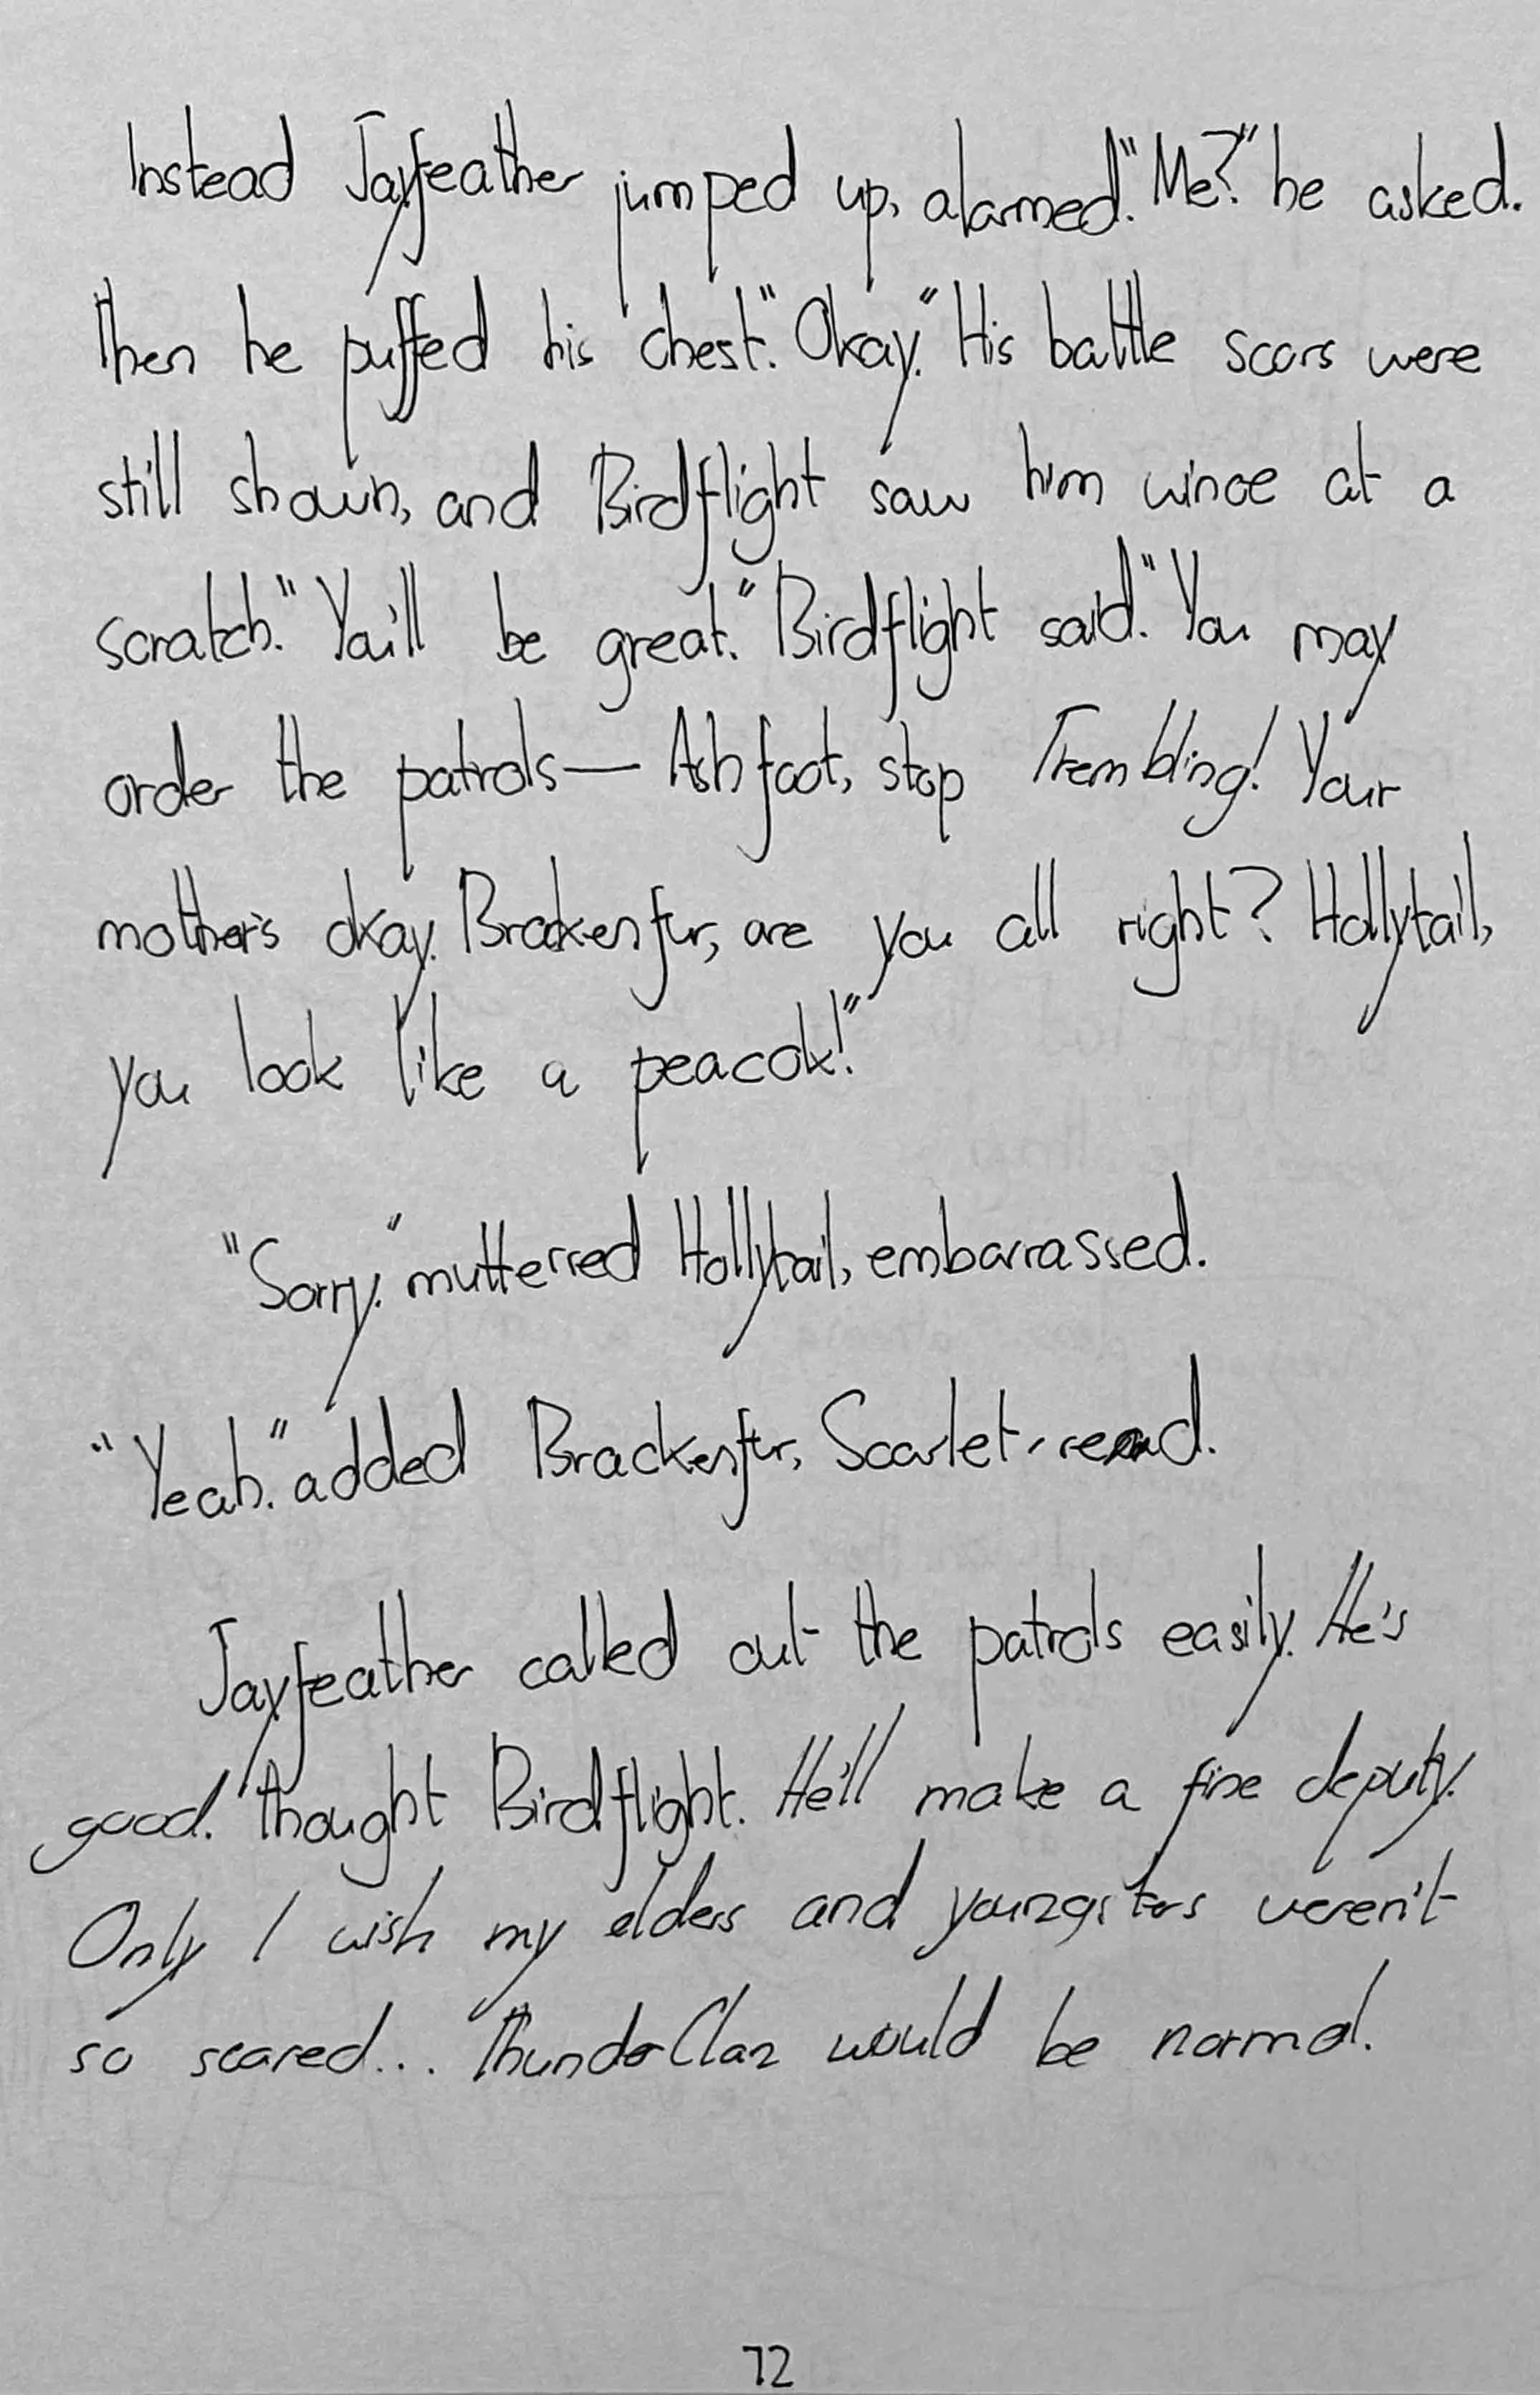 Instead Jayfeather jumped up, alarmed. "Me?" he asked.
Then he puffed his chest. "Okay." His battle scars were
still shown, and Birdflight saw him wince at a
scratch. "You'll be great." Birdflight said. "You may
order the patrols— Ashfoot, stop Trembling! Your
mother's okay. Brackenfur, are you all right? Hollytail,
you look like a peacock!"
"Sorry." mutterred Hollytail, embarrassed.
"Yeah." added Brackenfur, Scarlet-
Jayfeather called out the patrols easily. He's
good. thought Birdflight. He'll make a fine deputy.
Only I wish my elders and youngsters weren't
so scared... ThunderClan would be normal.
72